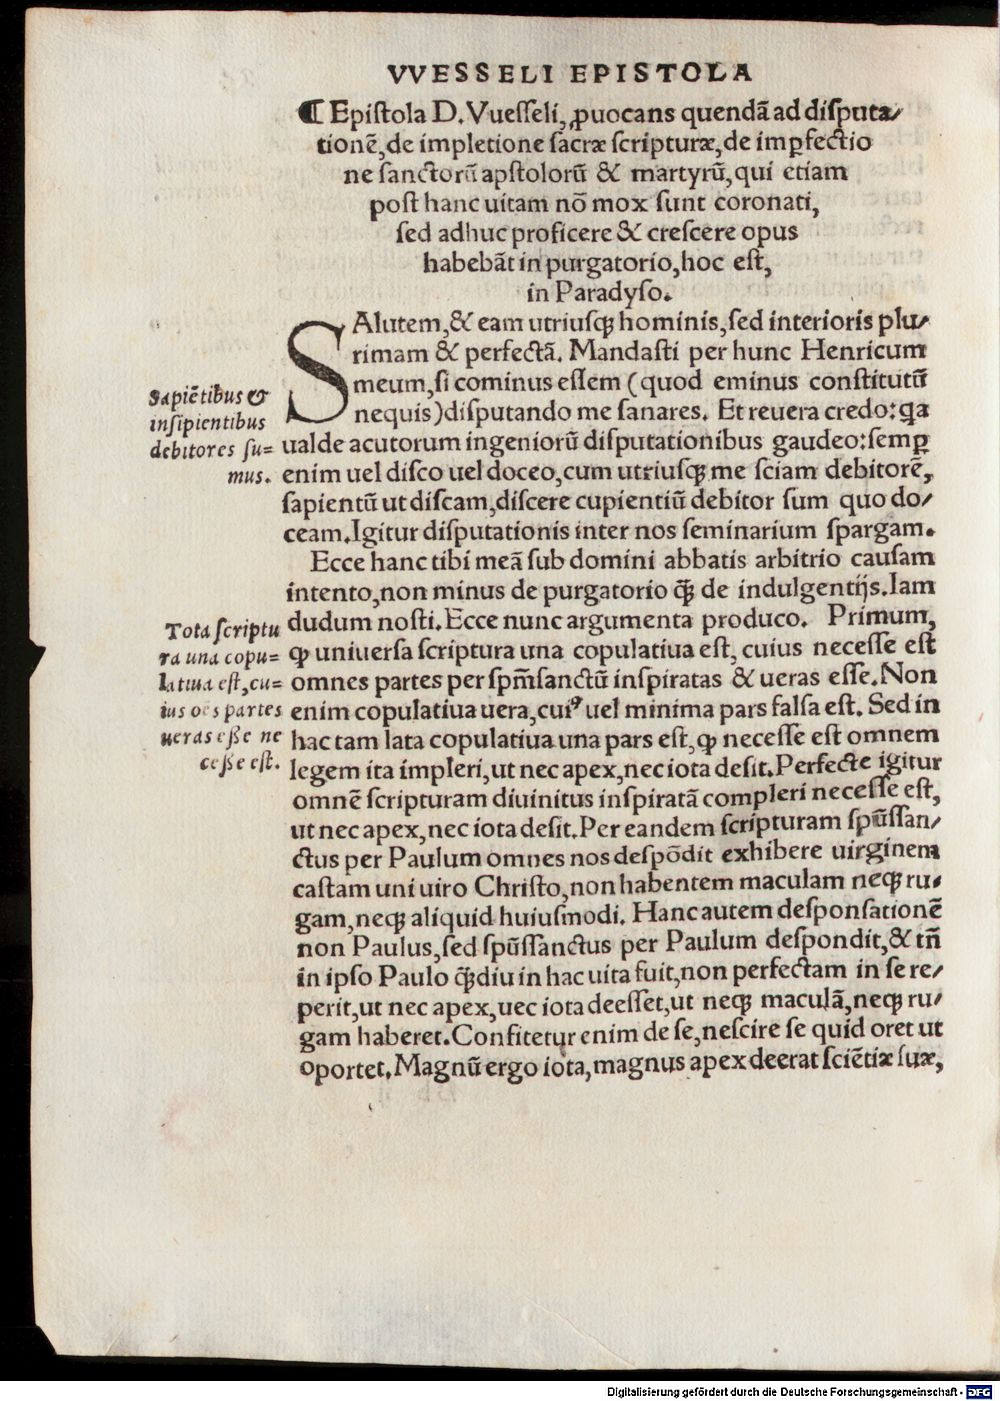 VVESSELI EPISTOLA
¶ Epiſtola D. Vueſſeli, ꝓuocans quendã ad diſputa/
tionẽ, de impletione ſacræ ſcripturæ, de imꝑfectio
ne ſanctorũ apſtolorũ & martyrũ, qui etiam
poſt hanc uitam nõ mox ſunt coronati,
ſed adhuc proficere & creſcere opus
habebãt in purgatorio, hoc eſt,
in Paradyſo.
SAlutem, & eam utriuſq; hominis, ſed interioris plu/
rimam & perfectã. Mandaſti per hunc Henricum
meum, ſi cominus eſſem (quod eminus conſtitutũ
nequis) diſputando me ſanares. Et reuera credo: ꝗa
ualde acutorum ingeniorũ diſputationibus gaudeo: ſemꝑ
enim uel diſco uel doceo, cum utriuſq; me ſciam debitorẽ,
ſapientũ ut diſcam, diſcere cupientiũ debitor ſum quo do/
ceam. Igitur diſputationis inter nos ſeminarium ſpargam.
Sapiẽtibus &
inſipientibus
debitores ſu=
mus.
Ecce hanc tibi meã ſub domini abbatis arbitrio cauſam
intento, non minus de purgatorio q̃ de indulgentijs. Iam
dudum noſti. Ecce nunc argumenta produco. Primum,
ꝙ uniuerſa ſcriptura una copulatiua eſt, cuius neceſſe eſt
omnes partes per ſpm̃ſanctũ inſpiratas & ueras eſſe. Non
enim copulatiua uera, cuiꝰ uel minima pars falſa eſt. Sed in
hac tam lata copulatiua una pars eſt, ꝙ neceſſe eſt omnem
legem ita impleri, ut nec apex, nec iota deſit. Perfecte igitur
omnẽ ſcripturam diuinitus inſpiratã compleri neceſſe eſt,
ut nec apex, nec iota deſit. Per eandem ſcripturam ſpũſſan/
ctus per Paulum omnes nos deſpõdit exhibere uirginem
caſtam uni uiro Chriſto, non habentem maculam neq; ru/
gam, neq; aliquid huiuſmodi. Hanc autem deſponſationẽ
non Paulus, ſed ſpũſſanctus per Paulum deſpondit, & tñ
in ipſo Paulo q̃diu in hac uita fuit, non perfectam in ſe re/
perit, ut nec apex, uec iota deeſſet, ut neq; maculã, neq; ru/
gam haberet. Confitetur enim de ſe, neſcire ſe quid oret ut
oportet. Magnũ ergo iota, magnus apex deerat ſciẽtiæ ſuæ,
Tota ſcriptu
ra una copu=
latiua eſt, cu=
ius oẽs partes
ueras eſſe ne
ceſſe eſt.
Digitalisierung gefördert durch die Deutsche Forschungsgemeinschaft - DFG